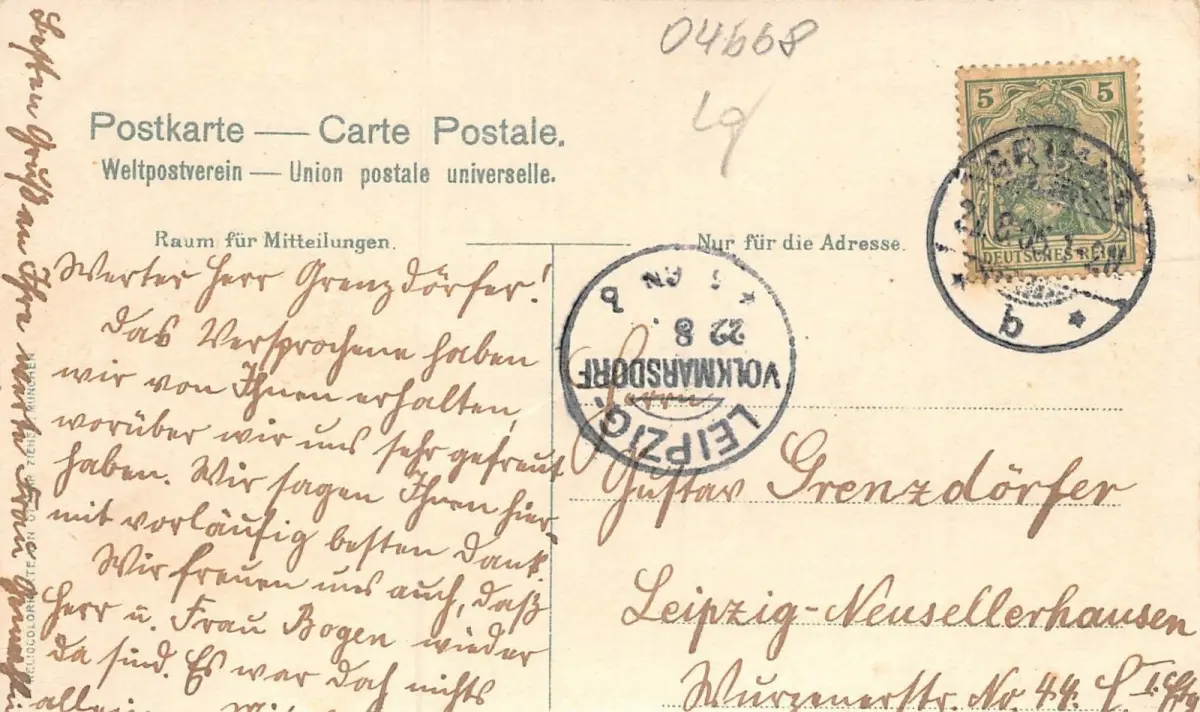 04668
Lg
Postkarte — Carte Postale.
Weltpostverein — Union postale universelle.
Raum für Mitteilungen.
Nur für die Adresse.
5 5
DEUTSCHES REICH
b
LEIPZIG.
VOLKMARSDORF
22 8
Werter Herr Grenzdörfer!
Das Versprochene haben
wir von Ihnen erhalten,
worüber wir uns sehr gefreut
haben. Wir sagen Ihnen hier-
mit vorläufig besten Dank.
Wir freuen uns auch, daß
Herr u. Frau Bogen wieder
da sind. Es war doch nichts
allein
Besten Gruß an Ihre werte Frau
Herrn
Gustav Grenzdörfer
Leipzig-Neusellerhausen
Wurzenerstr. No. 44.